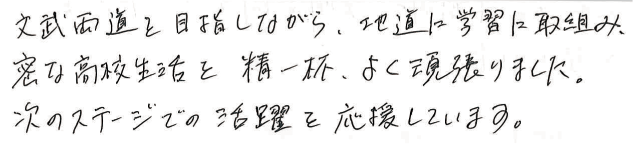 文武両道を目指しながら、地道に学習に取組み、
密な高校生活を精一杯、よく頑張りました。
次のステージでの活躍を応援しています。